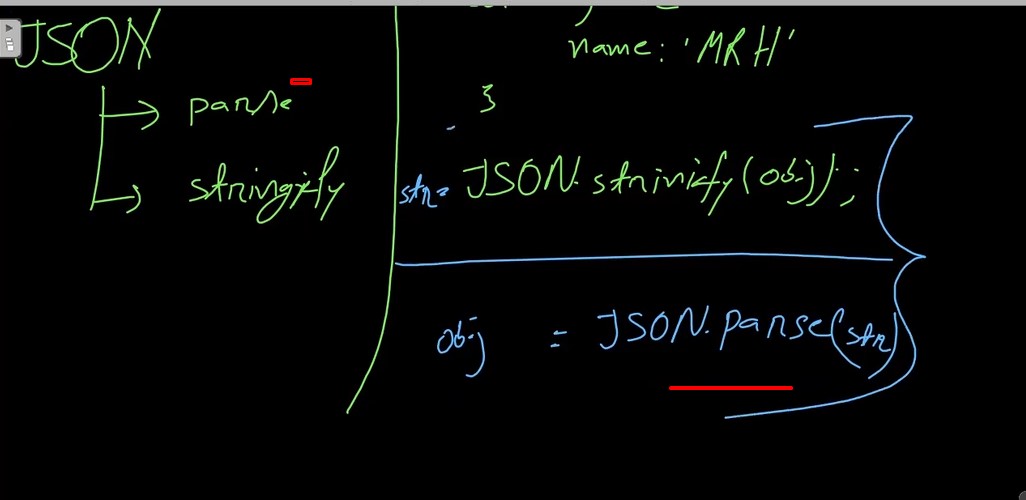 JSON
parse
stringify
name: 'MRH'
}
str = JSON.strinify(obj);
obj = JSON.parse(str)